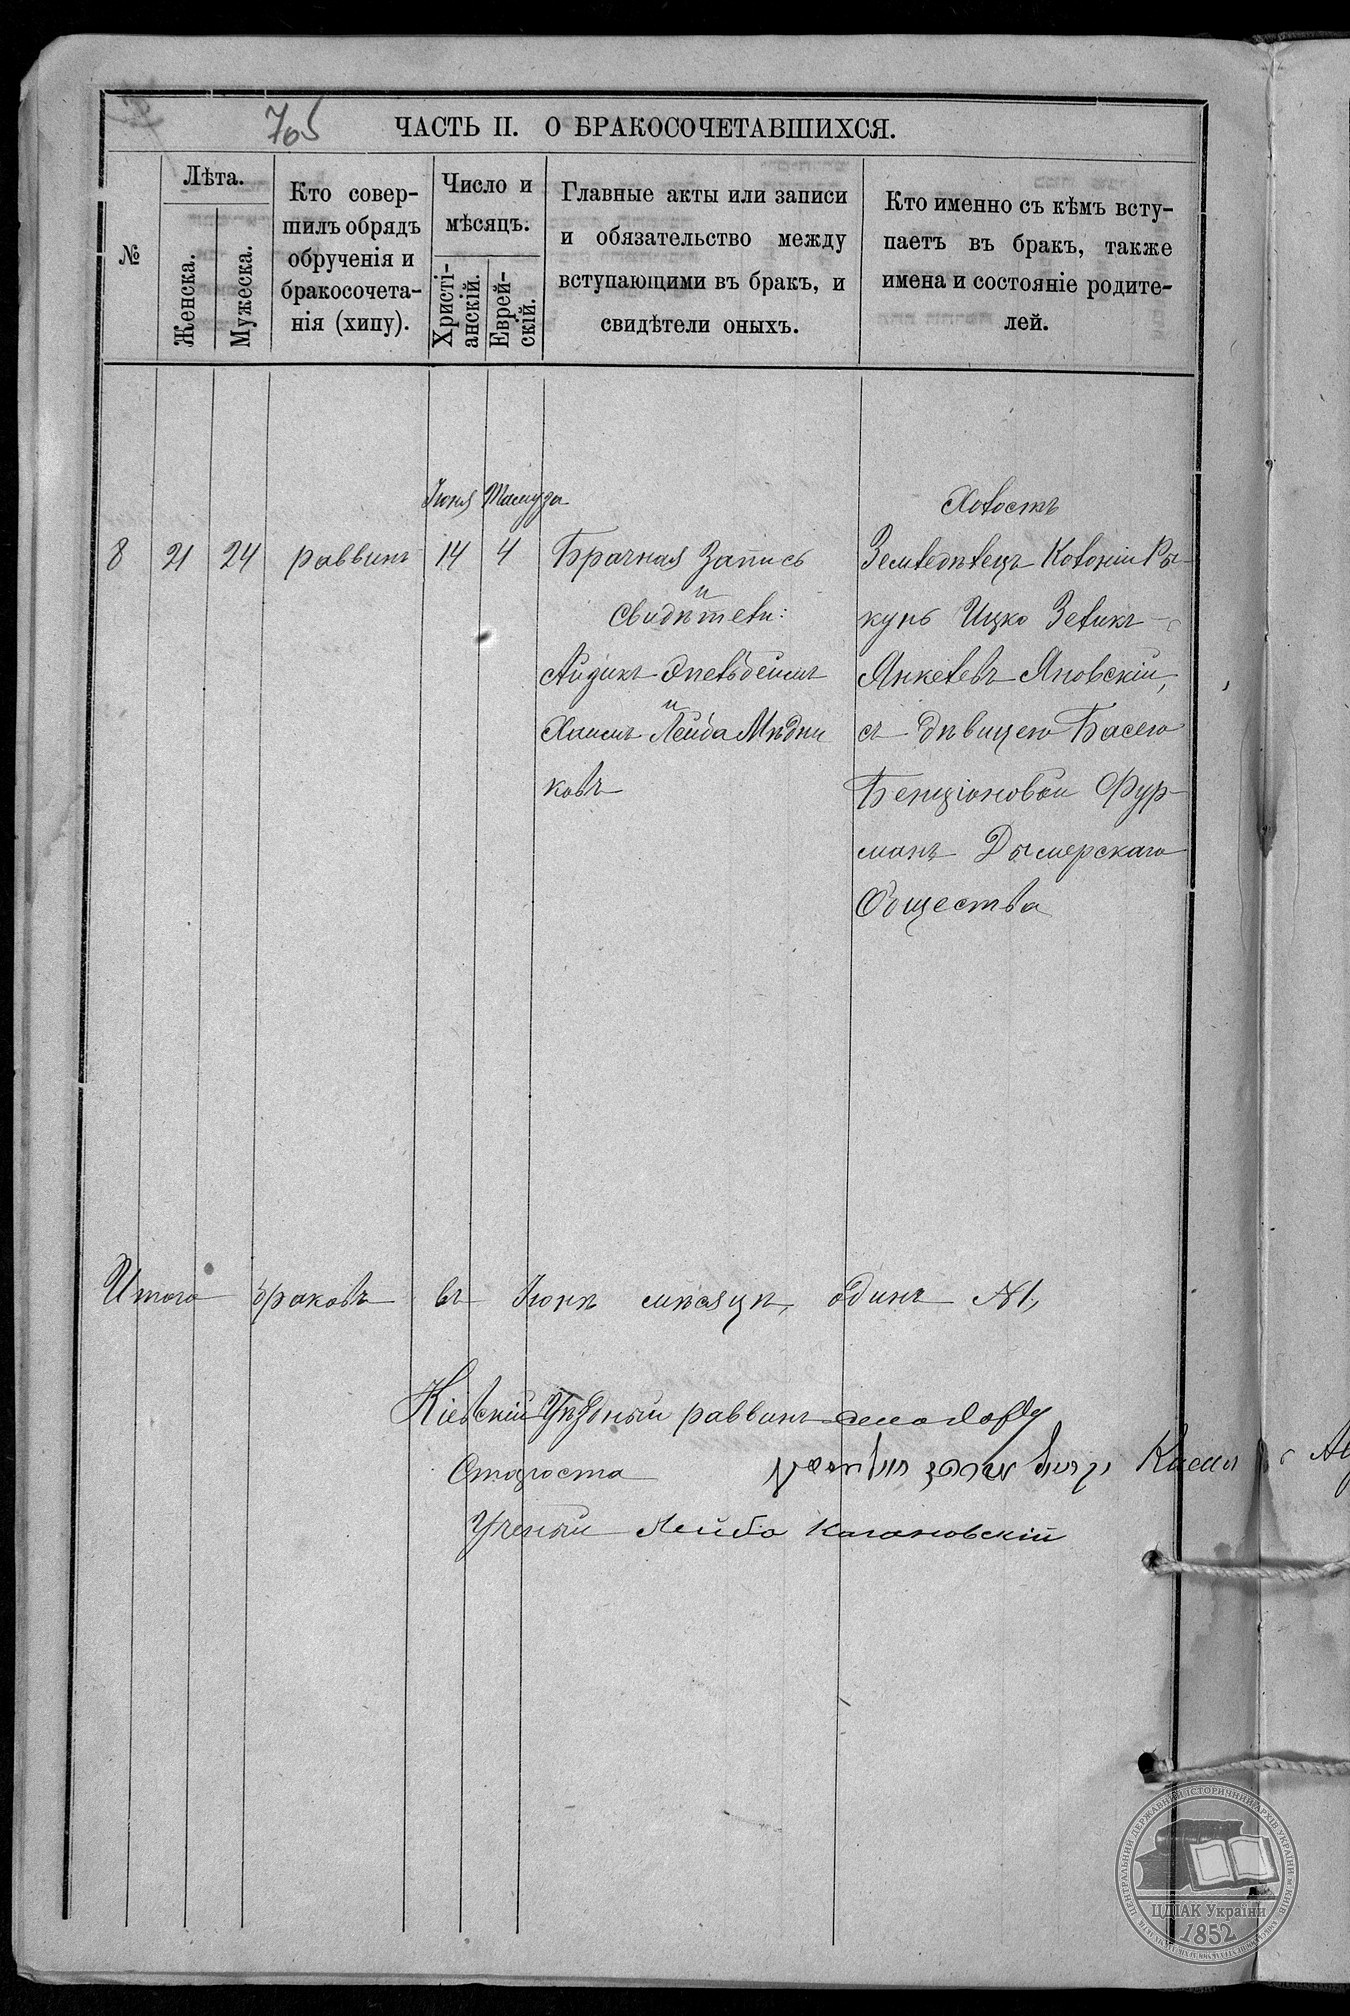 705
ЧАСТЬ II. О БРАКОСОЧЕТАВШИХСЯ.
№
Лѣта.
Женска.
Мужеска.
Кто совер-
шилъ обрядъ
обрученія и
бракосочета-
нія (хипу).
Число и
мѣсяцъ.
Христі-
анскій.
Еврей-
скій.
Главные акты или записи
и обязательство между
вступающими въ бракъ, и
свидѣтели оныхъ.
Кто именно съ кѣмъ всту-
паетъ въ бракъ, также
имена и состояніе родите-
лей.
Іюня Тамуза
Холостъ
8 21 24 раввинъ 14 4 Брачная Запись
и
Свидѣтели:
Айзикъ Апельбеймъ
и
Хаимъ Лейба Мѣдни
ковъ
Земледѣлецъ Колоніи Ры-
кунь Ицко Зеликъ
Янкелевъ Яновскій,
съ дѣвицею Басею
Бенціоновой Фур-
манъ Дымерскаго
Общества
Итого браковъ въ Іюнѣ мѣсяцѣ, одинъ №1,
Кіевскій Уѣздный раввинъ
Староста
Ученый Лейба Кагановскій
ЦЕНТРАЛЬНИЙ ДЕРЖАВНИЙ ІСТОРИЧНИЙ АРХІВ УКРАЇНИ м. КИЇВ
ЦДІАК України
1852